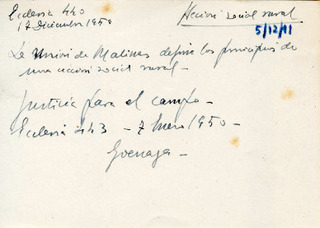 Ecclesia 440
17 Diciembre 1950
Acción social rural
5/12/11
La Unión de Malinas define los principios de
una acción social rural -
Justicia para el campo -
Ecclesia 443 - 7 Enero 1950 -
Goenaga -